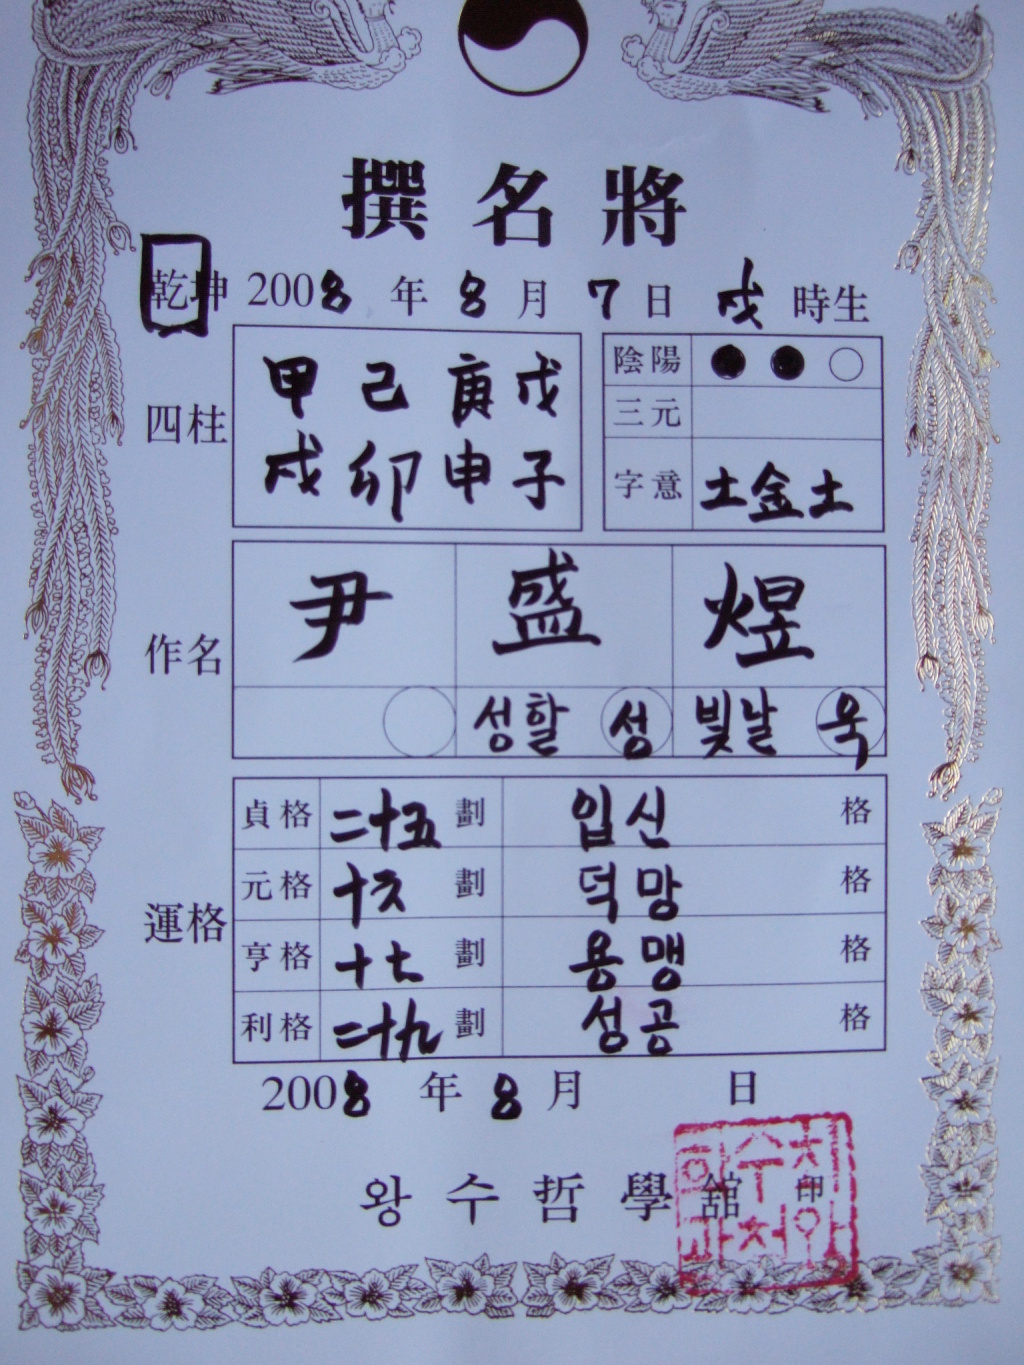 撰名將
乾坤 2008年 8月 7日 戌 時生
四柱
甲 己 庚 戊
戌 卯 申 子
陰陽 ●●○
三元
字意 土金土
作名
尹 盛 煜
성할 성 빛날 욱
運格
貞格 二十五 劃 입신 格
元格 十六 劃 덕망 格
亨格 十七 劃 용맹 格
利格 二十九 劃 성공 格
2008年 8月 日
왕수哲學舘 印